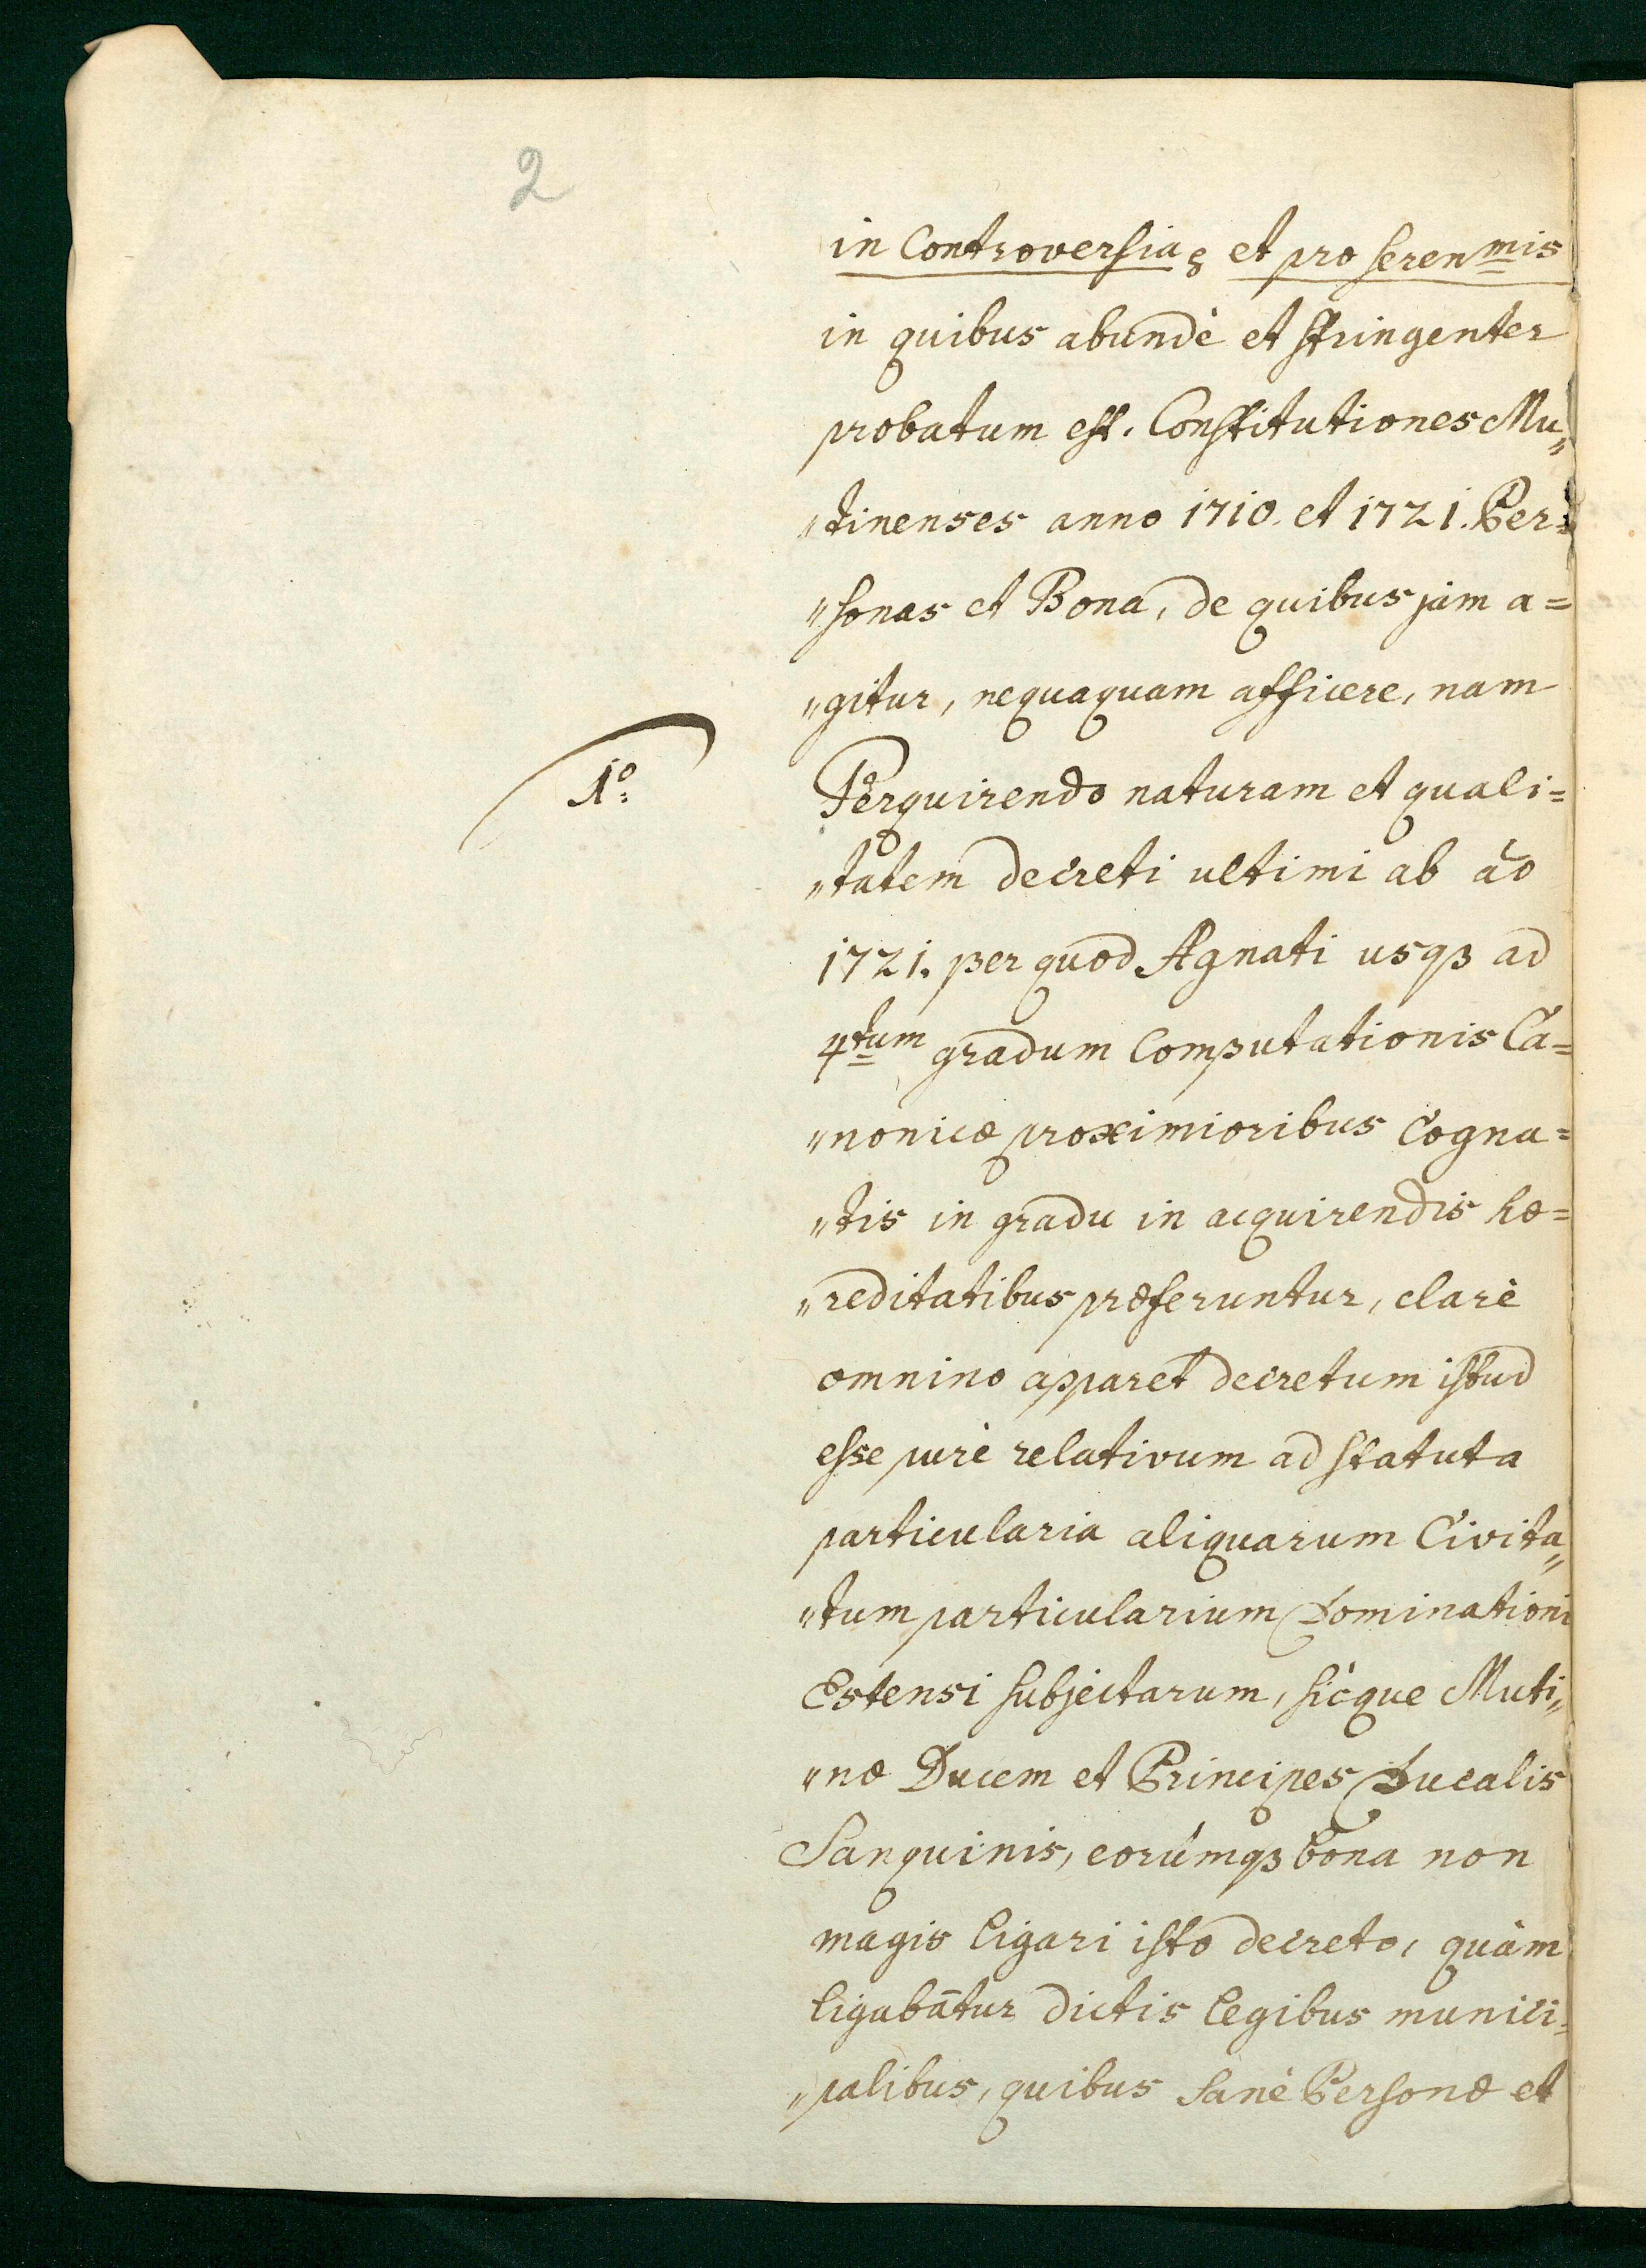 2
in Controversia, et pro seren<sup>mis</sup>
in quibus abundè et stringenter
probatum est. Constitutiones Mu„
„tinenses anno 1710. et 1721. Per=
„sonas et Bona, de quibus jàm a=
„gitur, nequaquam afficere, nam
1º: Perquirendo naturam et quali=
„tatem decreti ultimi ab āo
1721. per quod Agnati usqꝫ ad
4<sup>tum</sup> gradum Computationis Ca=
„nonicæ proximioribus Cogna=
„tis in gradu in acquirendis hæ=
„reditatibus præferuntur, clarè
omnino apparet decretum istud
esse purè relativum ad statuta
particularia aliquarum Civita„
„tum particularium Dominationi
Estensi subjectarum, sìcque Muti„
„næ Ducem et Principes Ducalis
Sanquinis, eorúmqꝫ bona non
magis ligari isto decreto, quàm
ligabātur dictis legibus munici„
„palibus, quibus sanè Personæ et